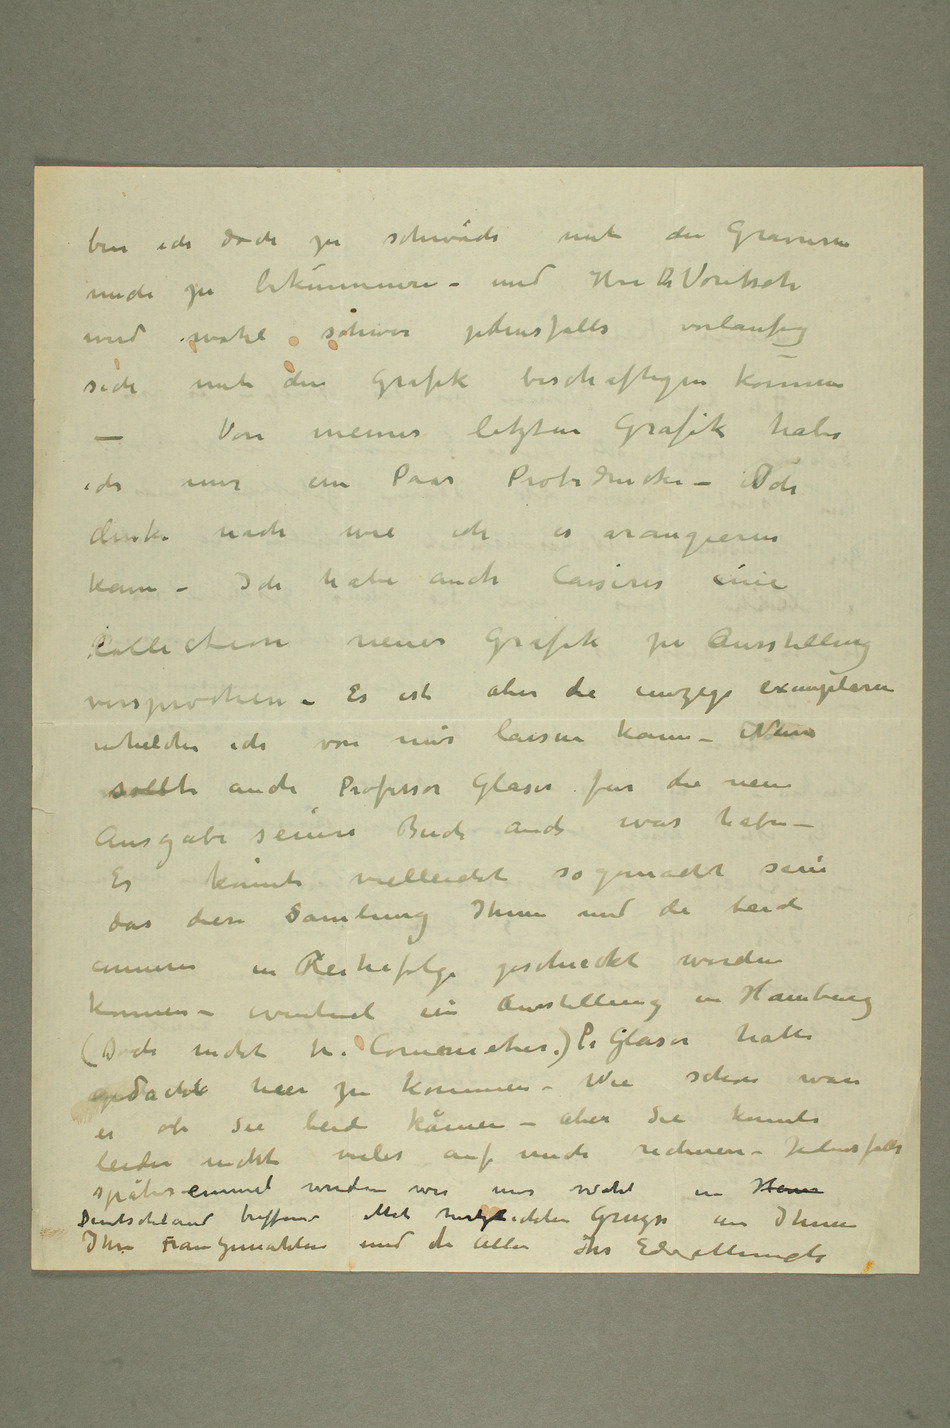 bin ich doch zu schwach mit die Gravuren
mich zu bekümmern – und Herr Dr Voretzsch
wird wohl schwer jedensfalls vorlaufig
sich mit die Grafik beschaftigen können
– Von meiner letzten Grafik habe
ich nur ein Paar Probedrucke – Ich
denke nach wie ich es arangieren
kann – Ich habe auch Cassirer eine
Collection neuer Grafik zu Ausstellung
versprochen – Es ist aber die einzige exemplaren
whelche ich von mir lassen kann –
sollte auch Professor Glaser fur die neue
Ausgabe seines Buch auch was haben –
Es könnte vielleicht so gemacht sein
das diese Samlung Ihnen und die beide
anneren in Reihefolge geschickt werden
konnen – eventuel ein Ausstellung in Hamburg
(Doch nicht h. Commeter.) Pr Glaser hatte
gedacht hier zu kommen – Wie schön wäre
es ob Sie beide kämen – aber Sie konnte
leider nicht vieles auf mich rechnen – Jedensfalls
später einmal werden wir uns wohl in
Deutschland treffen – Mit herzlichten Grüsse an Ihnen
Ihre Frau Gemahlin und die Alle Ihr Edv. Munch